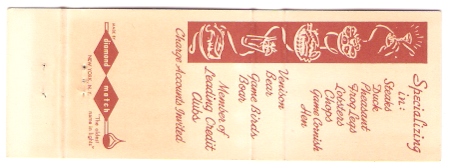 Specializing
in:
Steaks
Ducks
Pheasant
Frog Legs
Lobsters
Chops
Game Cornish
Hen
Venison
Bear
Game Birds
Boar
Member of
Leading Credit
Clubs
Charge Accounts Invited
MADE BY
diamond match
NEW YORK, N.Y.
"The oldest
name in lights"